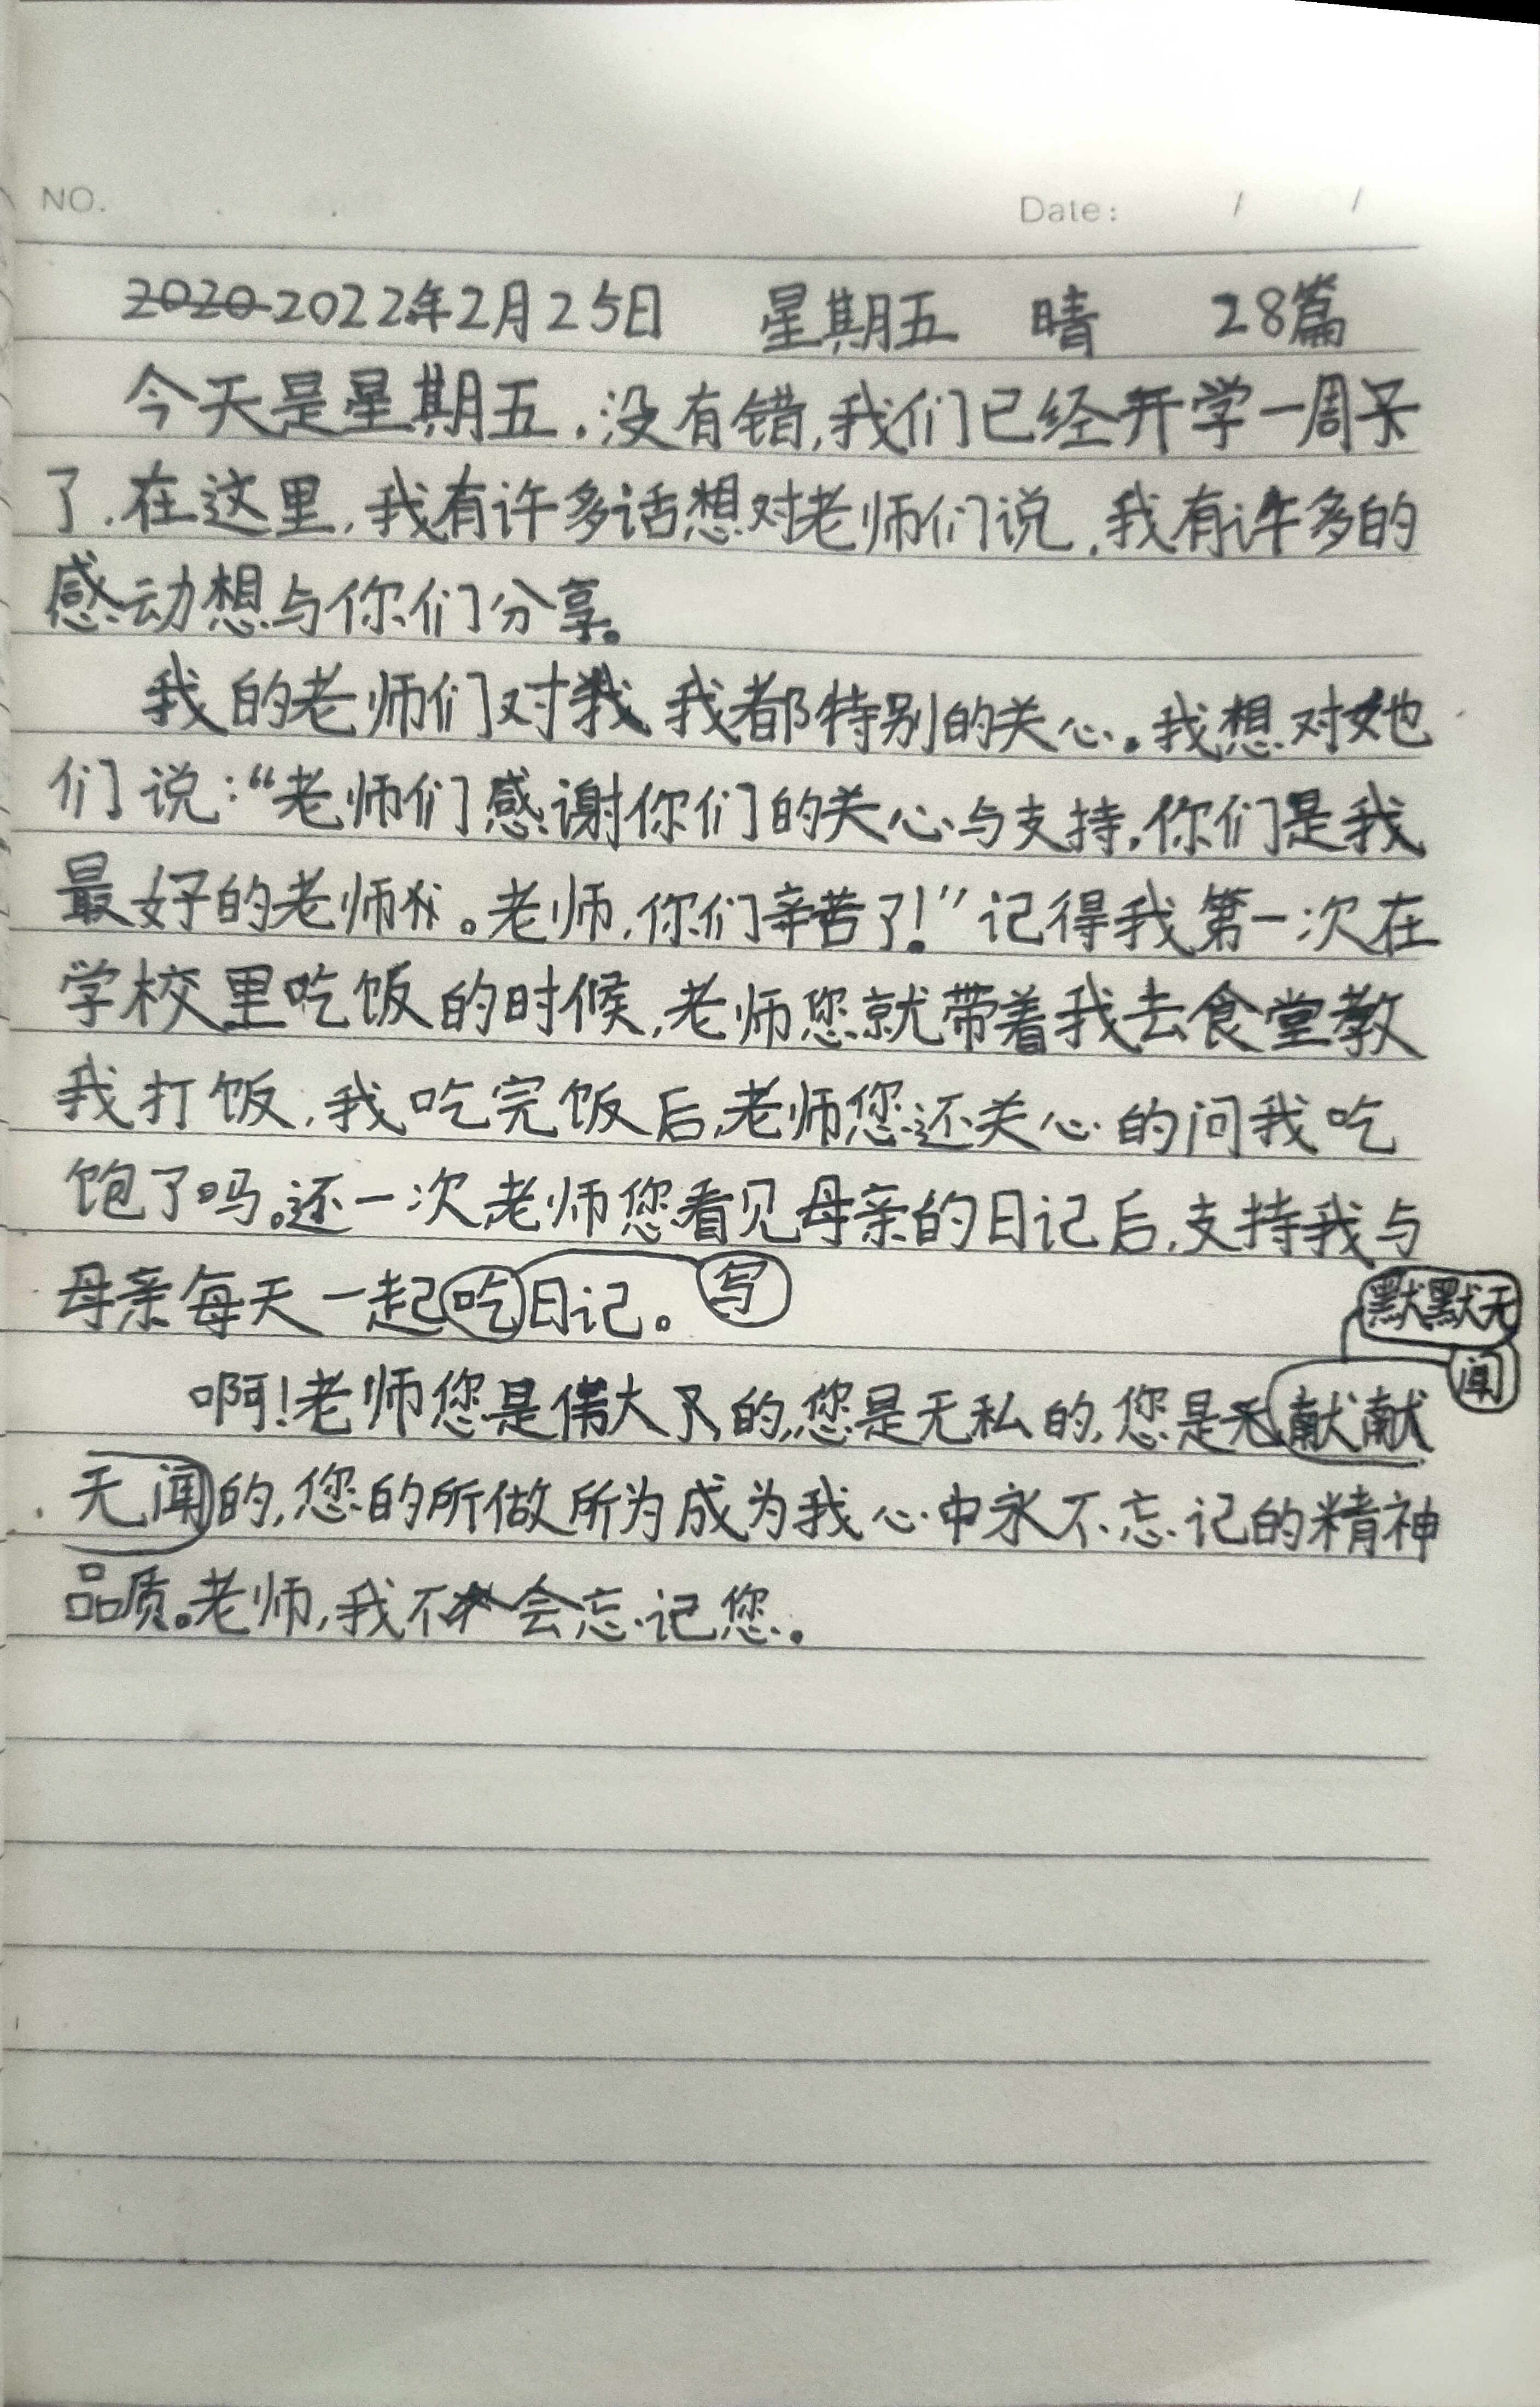 NO. Date: / /
2020 2022年2月25日 星期五 晴 28篇
今天是星期五.没有错,我们已经开学一周
了.在这里,我有许多话想对老师们说.我有许多的
感动想与你们分享。
我的老师们对我 我都特别的关心。我想对她
们说:“老师们感谢你们的关心与支持,你们是我
最好的老师。老师,你们辛苦了!”记得我第一次在
学校里吃饭的时候,老师您就带着我去食堂教
我打饭,我吃完饭后,老师您还关心的问我吃
饱了吗。还一次老师您看见母亲的日记后,支持我与
母亲每天一起吃日记。 写
默默无
闻
啊!老师您是伟大的,您是无私的,您是献献
无闻的,您的所做所为成为我心中永不忘记的精神
品质。老师,我不会忘记您。